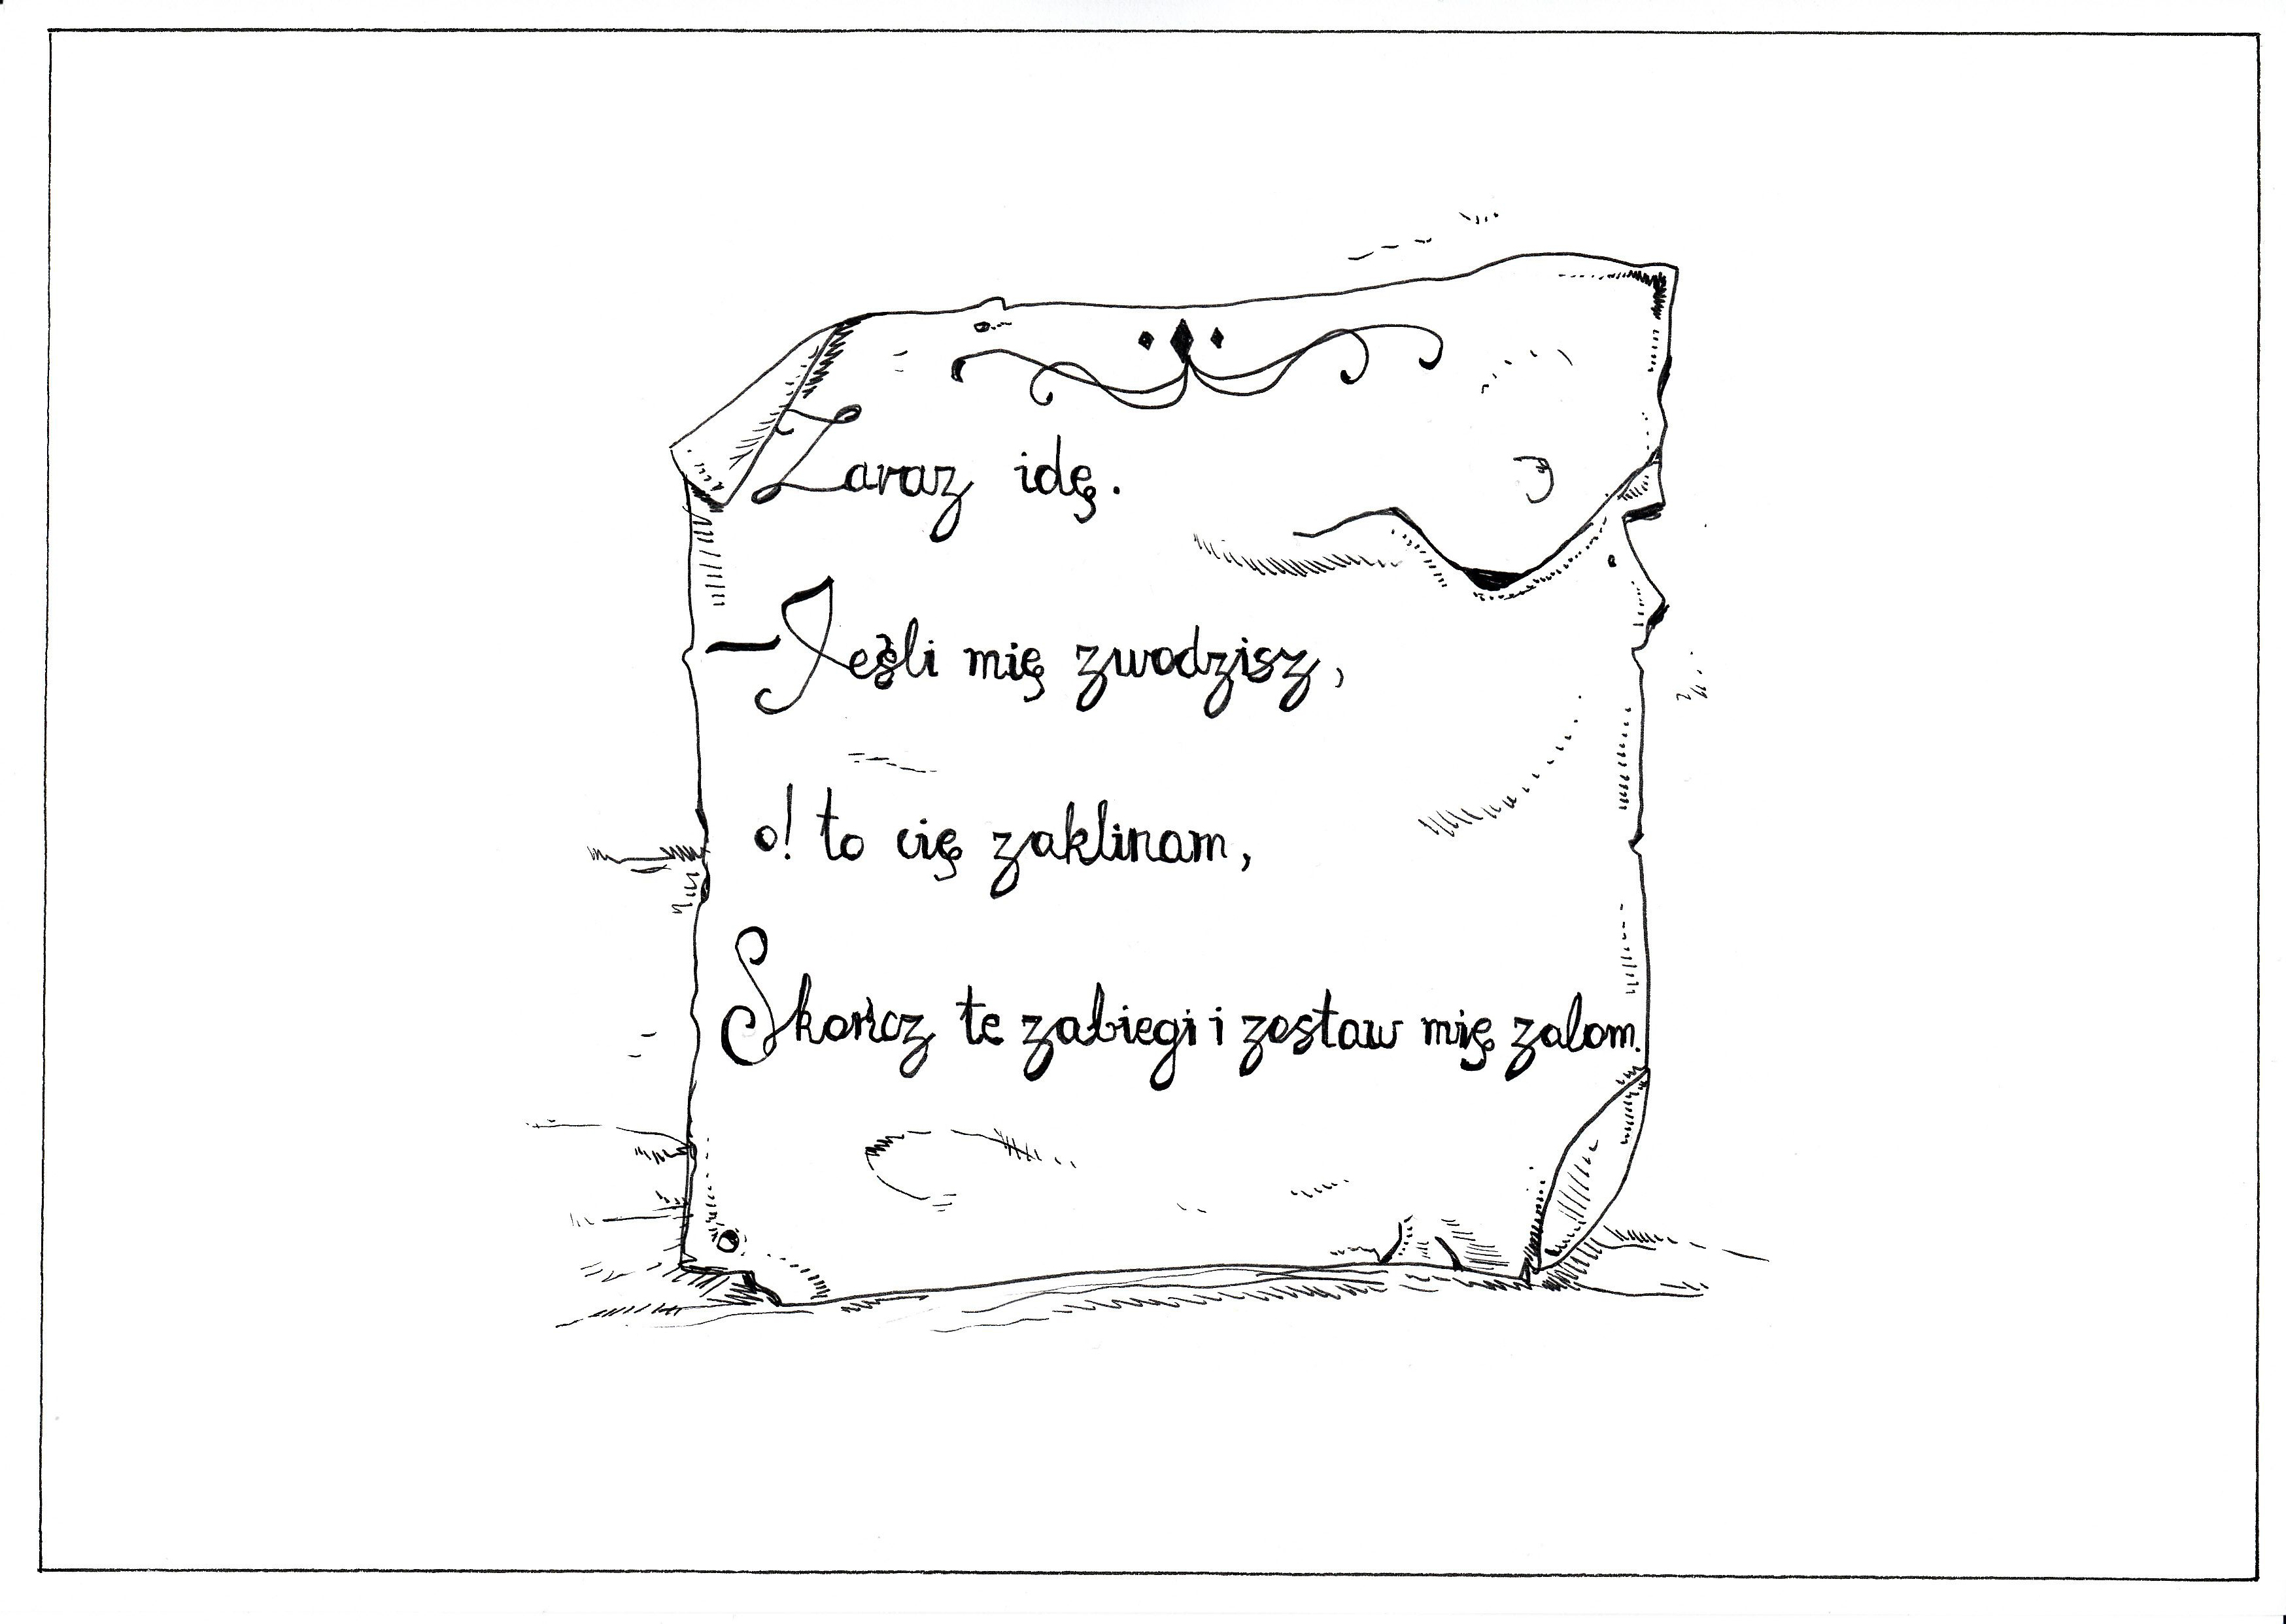 Zaraz idę.
—Jeśli mię zwodzisz,
o! to cię zaklinam,
Skończ te zabiegi i zostaw mię żalom.